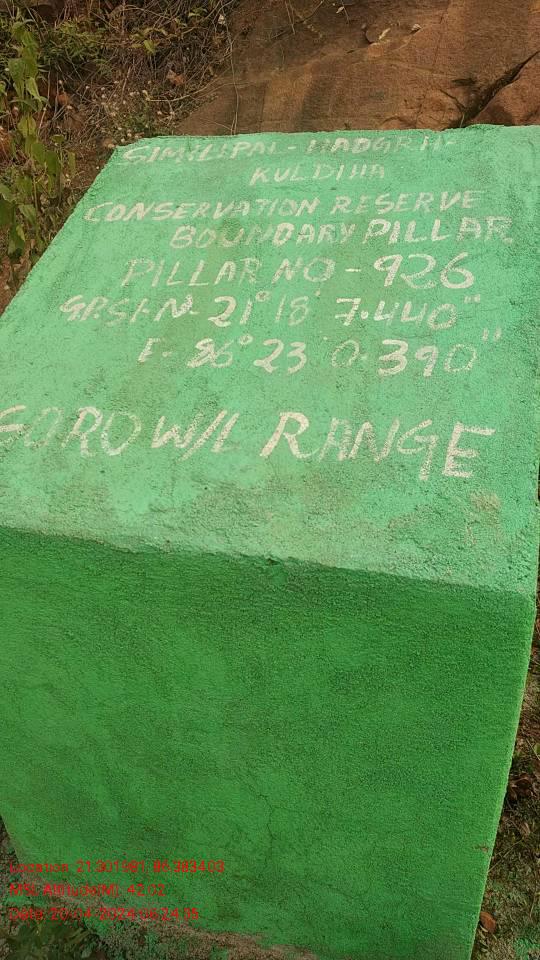 SIMILIPAL-HADGRH-
KULDIHA
CONSERVATION RESERVE
BOUNDARY PILLAR
PILLAR NO-926
GP.SI-N-21° 18' 7.440"
E-86° 23' 0.390"
SORO W/L RANGE
Location: 21.301981, 86.383403
MSL Altitude(M): 42.02
Date: 20-04-2024